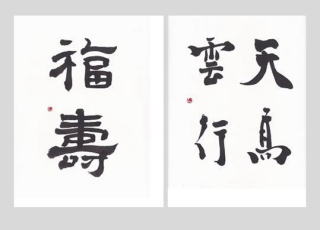 福壽
天馬
雲行